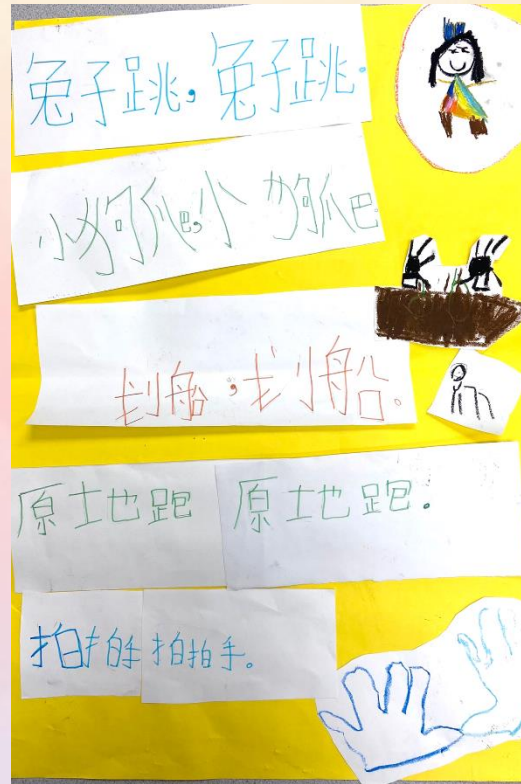 兔子跳，兔子跳。
小狗爬，小狗爬
划船，划船。
原土也跑 原土也跑。
拍拍手 拍拍手。